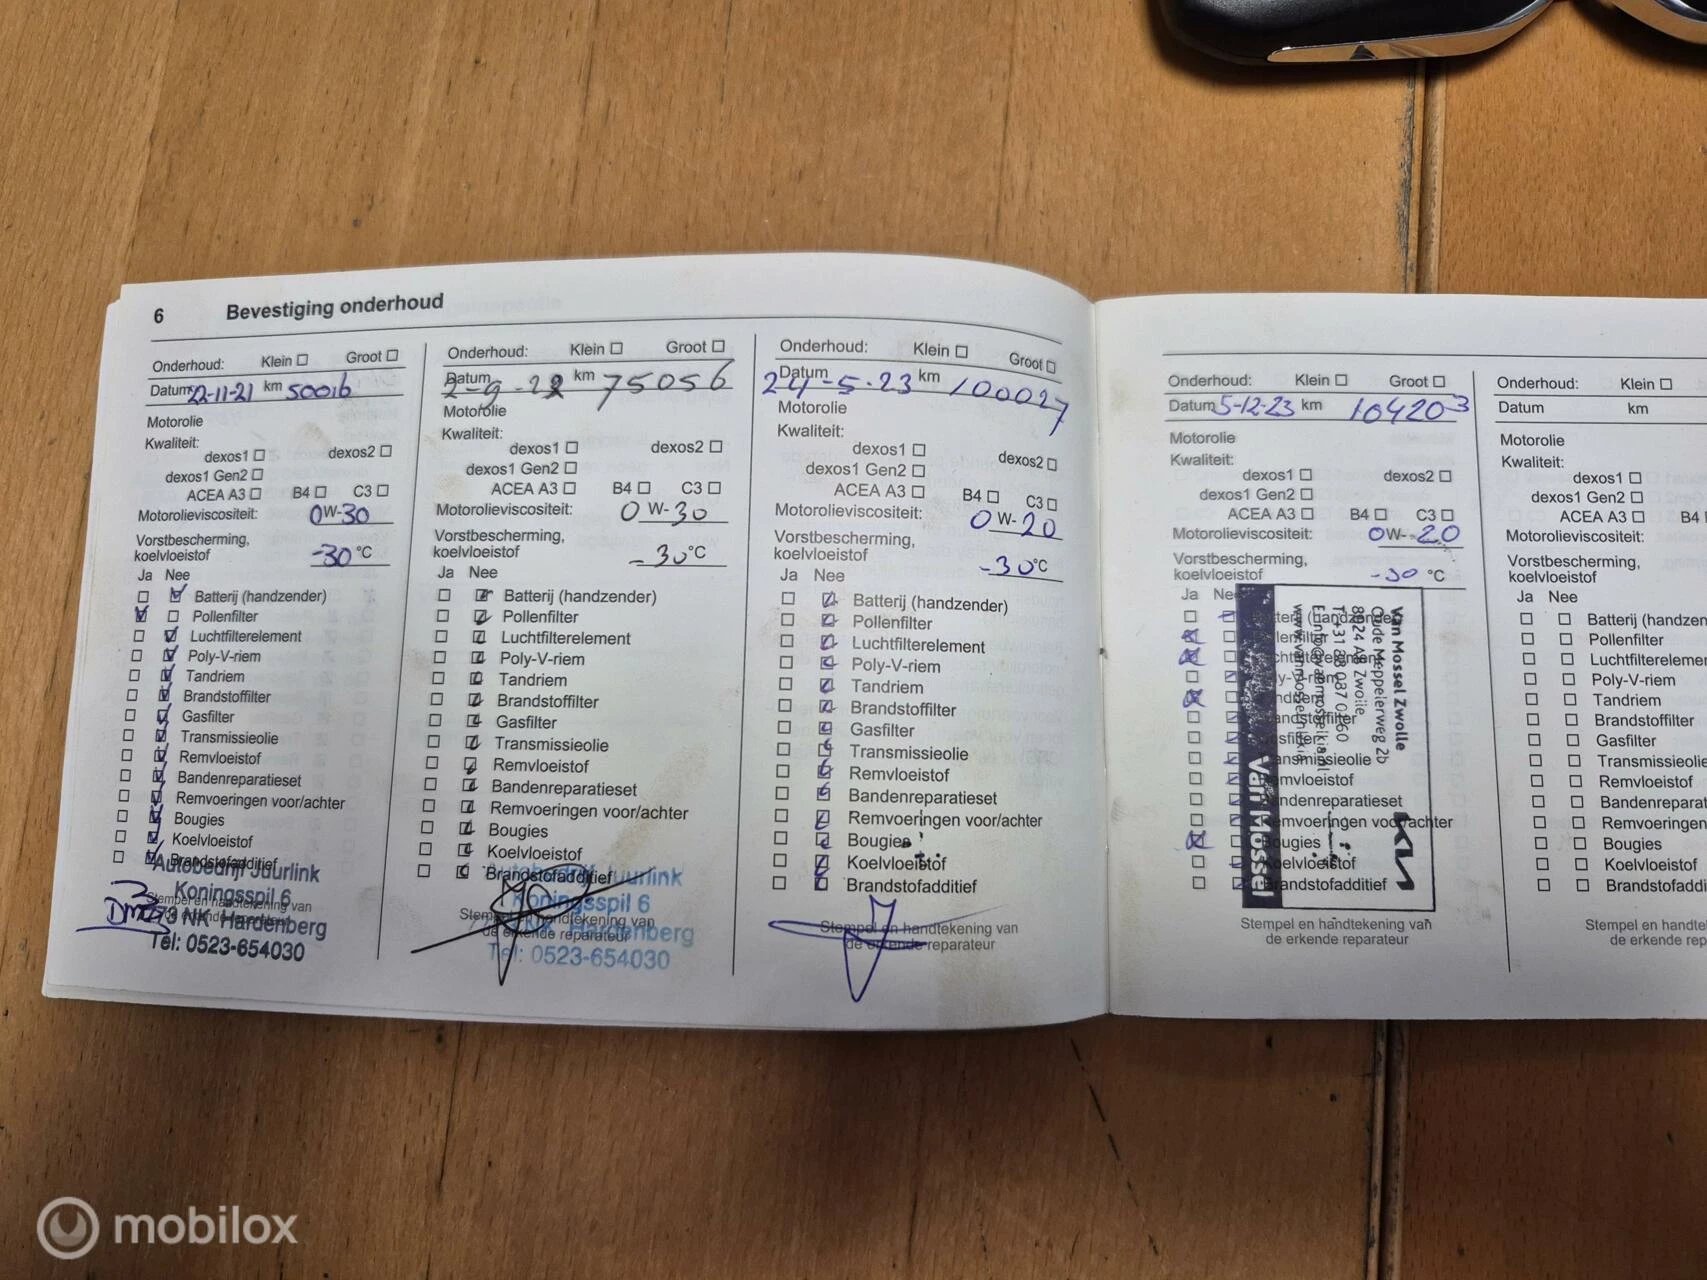 6 Bevestiging onderhoud
Onderhoud: Klein Groot
Datum 22-11-21 km 50016
Motorolie
Kwaliteit:
dexos1 dexos2
dexos1 Gen2
ACEA A3 B4 C3
Motorolieviscositeit: 0W-30
Vorstbescherming,
koelvloeistof -30 °C
Ja Nee
Batterij (handzender)
Pollenfilter
Luchtfilterelement
Poly-V-riem
Tandriem
Brandstoffilter
Gasfilter
Transmissieolie
Remvloeistof
Bandenreparatieset
Remvoeringen voor/achter
Bougies
Koelvloeistof
Brandstofadditief
Autobedrijf Juurlink
Koningsspil 6
Stempel en handtekening van
NK Hardenberg
Tel: 0523-654030
Onderhoud: Klein Groot
Datum 2-9-22 km 75056
Motorolie
Kwaliteit:
dexos1 dexos2
dexos1 Gen2
ACEA A3 B4 C3
Motorolieviscositeit: 0 W-30
Vorstbescherming,
koelvloeistof -30 °C
Ja Nee
Batterij (handzender)
Pollenfilter
Luchtfilterelement
Poly-V-riem
Tandriem
Brandstoffilter
Gasfilter
Transmissieolie
Remvloeistof
Bandenreparatieset
Remvoeringen voor/achter
Bougies
Koelvloeistof
Brandstofadditief
Autobedrijf Juurlink
Koningsspil 6
Stempel en handtekening van
Hardenberg
de erkende reparateur
Tel: 0523-654030
Onderhoud: Klein Groot
Datum 24-5-23 km 100027
Motorolie
Kwaliteit:
dexos1 dexos2
dexos1 Gen2
ACEA A3 B4 C3
Motorolieviscositeit: 0 W-20
Vorstbescherming,
koelvloeistof -30 °C
Ja Nee
Batterij (handzender)
Pollenfilter
Luchtfilterelement
Poly-V-riem
Tandriem
Brandstoffilter
Gasfilter
Transmissieolie
Remvloeistof
Bandenreparatieset
Remvoeringen voor/achter
Bougies
Koelvloeistof
Brandstofadditief
Stempel en handtekening van
de erkende reparateur
Onderhoud: Klein Groot
Datum 5-12-23 km 104203
Motorolie
Kwaliteit:
dexos1 dexos2
dexos1 Gen2
ACEA A3 B4 C3
Motorolieviscositeit: 0W-20
Vorstbescherming,
koelvloeistof -30 °C
Ja Nee
Transmissieolie
Remvloeistof
Bandenreparatieset
Remvoeringen voor/achter
Bougies
Koelvloeistof
Brandstofadditief
Van Mossel Zwolle
Oude Meppelerweg 2b
8024 AB Zwolle
Van Mossel
KIA
Stempel en handtekening van
de erkende reparateur
Onderhoud: Klein
Datum km
Motorolie
Kwaliteit:
dexos1
dexos1 Gen2
ACEA A3 B4
Motorolieviscositeit:
Vorstbescherming,
koelvloeistof
Ja Nee
Batterij (handzen
Pollenfilter
Luchtfilterelemen
Poly-V-riem
Tandriem
Brandstoffilter
Gasfilter
Transmissieolie
Remvloeistof
Bandenreparat
Remvoeringen
Bougies
Koelvloeistof
Brandstofaddi
Stempel en hand
de erkende rep
mobilox